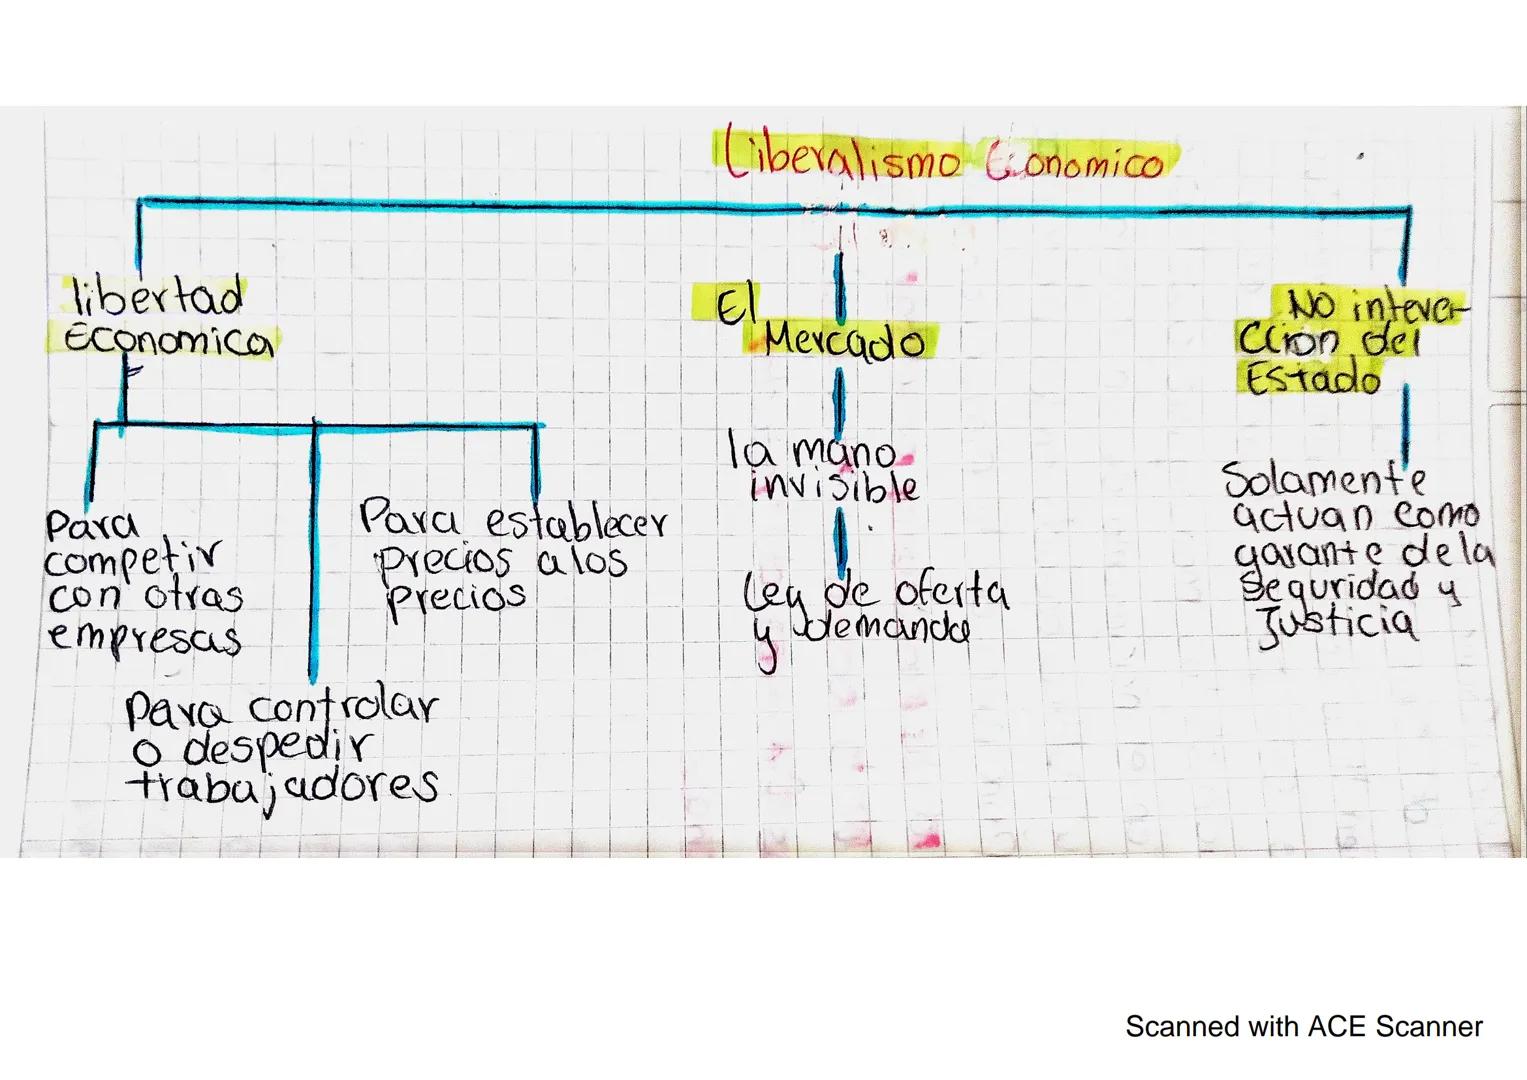 Liberalismo Economico
libertad
Economica
Para
competir
con otras
empresas
Para controlar
o despedir
trabajadores
Para establecer
precios a los
precios
El
Mercado
la mano
invisible
Ley de oferta
y demanda
NO intever-
ccion del
Estado
Solamente
actuan como
garante de la
seguridad y
Justicia
Scanned with ACE Scanner